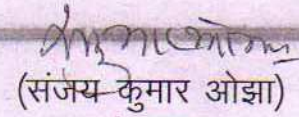 (संजय कुमार ओझा)